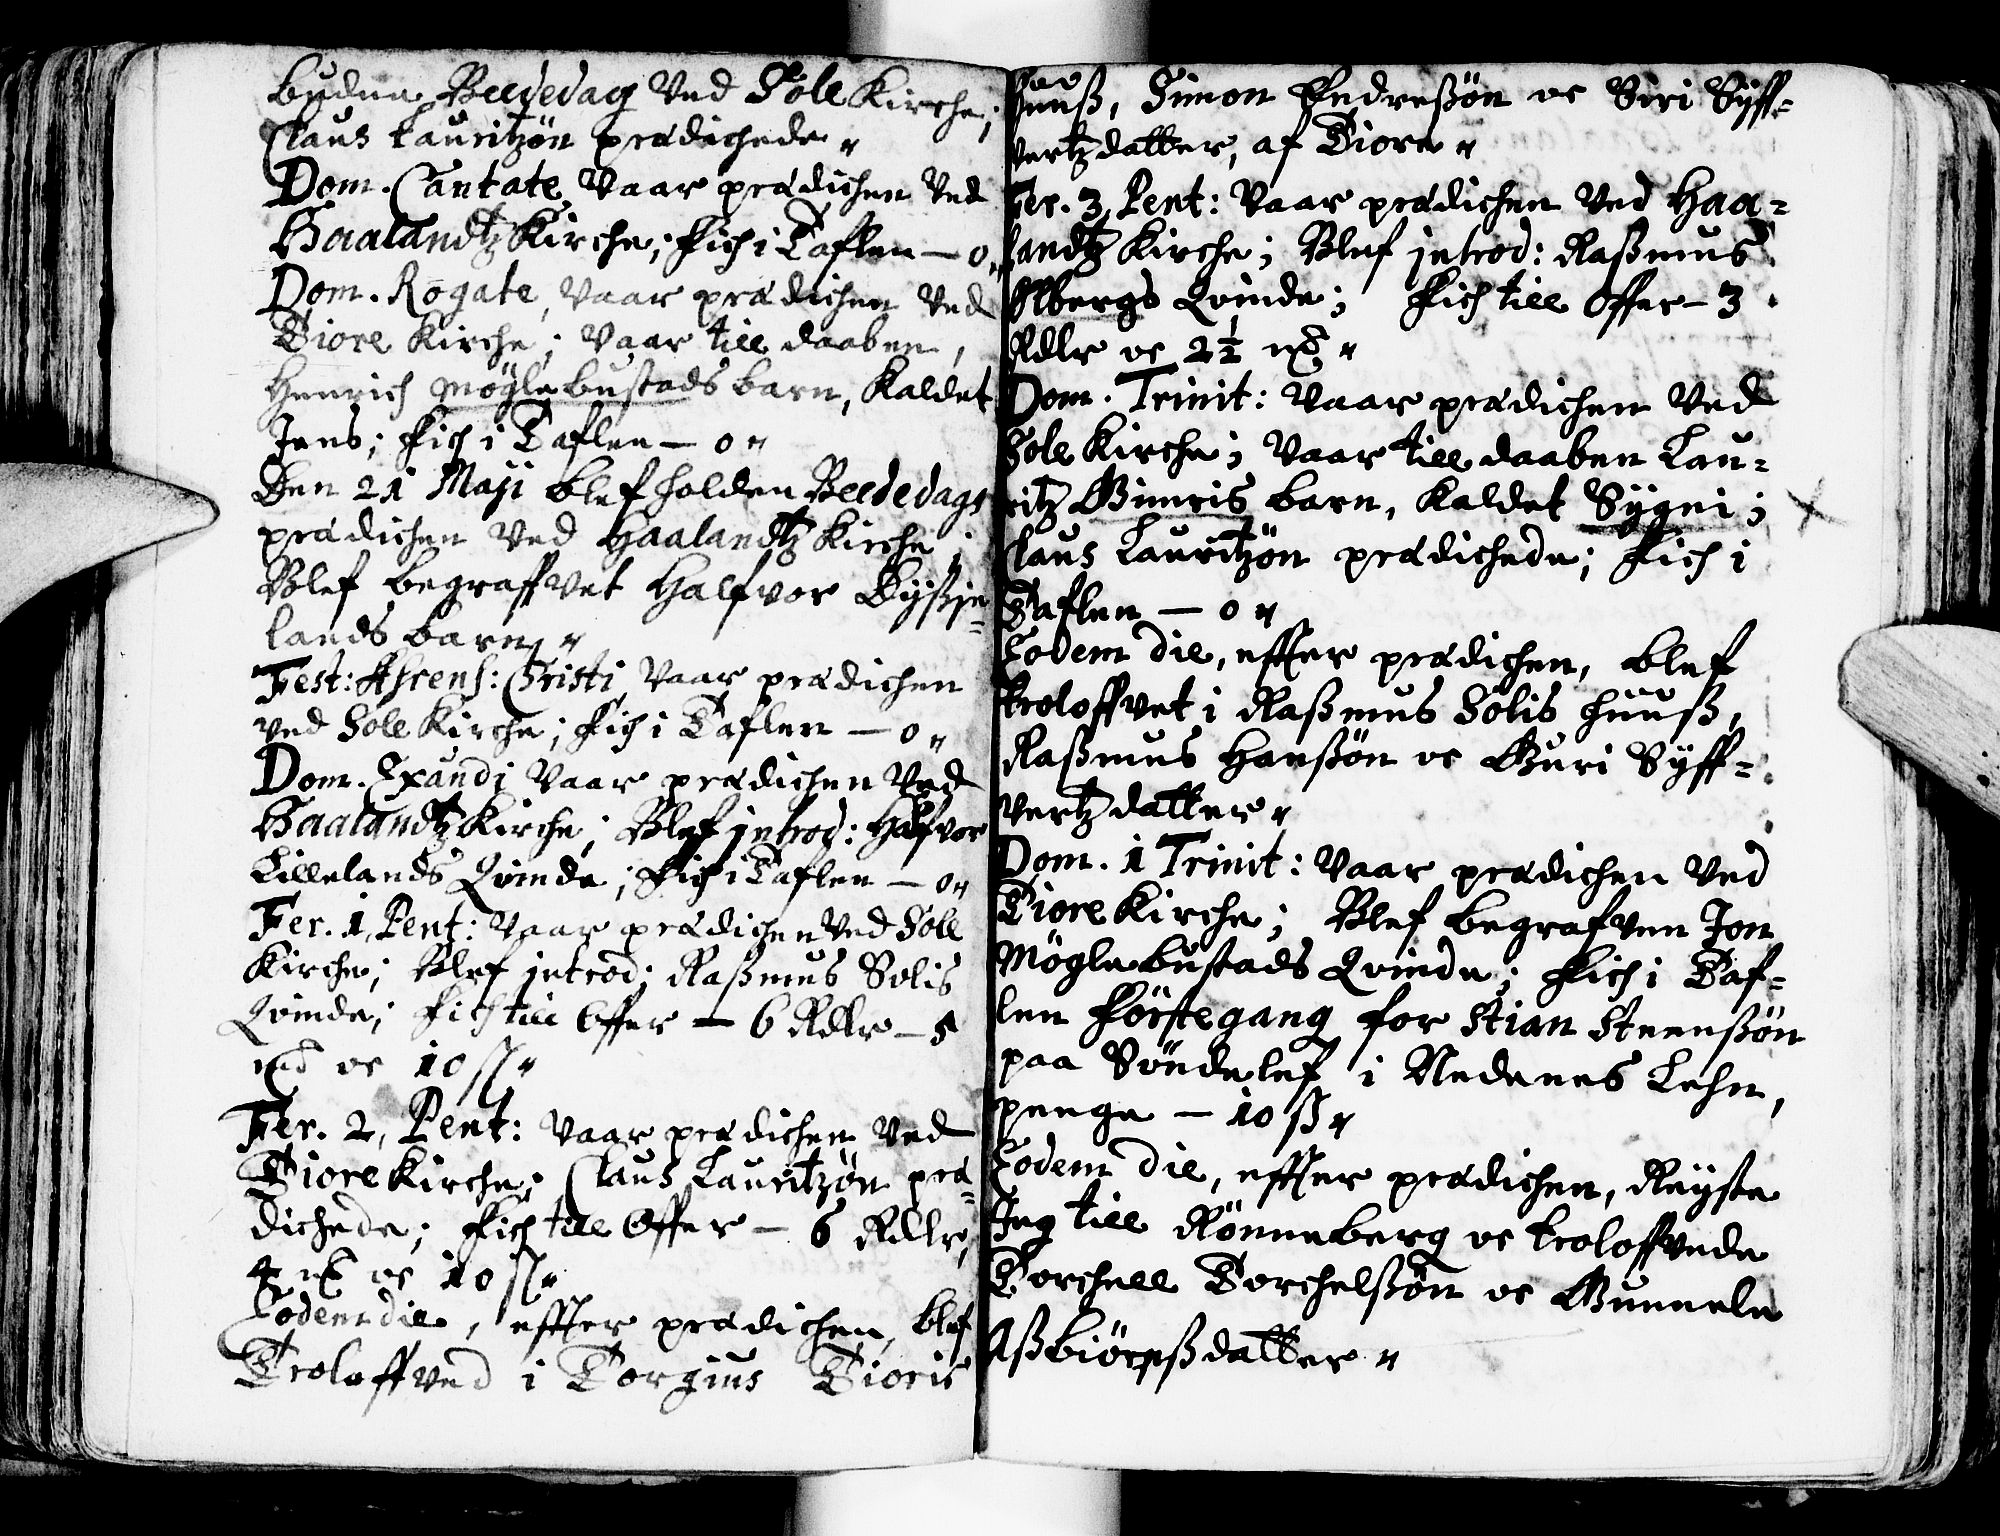 budne Beededag Ved Sole Kirche;
Claus Lauritzøn prædichede"
Dom. Cantate, Vaar prædichen Ved
Haalandtz Kirche; fich i Taflen — 0"
Dom. Rogate, Vaar prædichen Ved
Tiore Kirche; Vaar till daaben,
Henrich Møglebustads barn, Kaldet
Jens; fich i Taflen — 0"
Den 21 Maji blef holden Beededags
prædichen Ved Haalandtz Kirche;
Blef begraffvet Halfvor
lands barn"
Fest: Ascens: Christi, Vaar prædichen
Ved Sole Kirche; fich i Taflen — 0"
Dom. Exaudi Vaar prædichen Ved
Haalandtz Kirche; Blef introd: Halfvor
Lillelands Qvinde; fich i Taflen — 0"
Fer. 1, Pent: Vaar prædichen Ved Sole
Kirche; Blef introd: Raßmus Solis
Qvinde; fich till Offer — 6 Rdlr — 5
mꝶ oc 10 ß"
Fer. 2, Pent: Vaar prædichen Ved
Tiore Kirche; Claus Lauritzøn præ=
dichede; fich till Offer — 6 Rdlr,
4 mꝶ oc 10 ß"
Eodem die, effter prædichen, blef
Troloffved i Torgius Tioris
huuß, Simon Endreßøn oc Siri Syff=
vertzdatter, af Tiore"
Fer. 3, Pent: Vaar prædichen Ved Haa=
landtz Kirche; Blef introd: Raßmus
Ølbergs Qvinde; fich till Offer — 3
Rdlr oc 2½ mꝶ"
Dom. Trinit: Vaar prædichen Ved
Sole Kirche; Vaar till daaben Lau=
ritz Gimris barn, Kaldet Sygni;
Claus Lauritzøn prædichede; fich i
Taflen — 0"
Eodem die, effter prædichen, blef
troloffvet i Raßmus Solis huuß,
Raßmus Hanßøn oc Guri Syff=
vertzdatter"
Dom. 1 Trinit: Vaar prædichen Ved
Tiore Kirche; Blef begrafven Jon
Møglebustads Qvinde; fich i Taf=
len førstegang for Stian Steenßøn
paa Søndelef i Nedenes Lehn,
penge — 10 ß"
Eodem die, effter prædichen, Reyste
Jeg till Rønneberg oc troloffvede
Torchell Torchelßøn oc Gunnele
Aßbiørnßdatter"